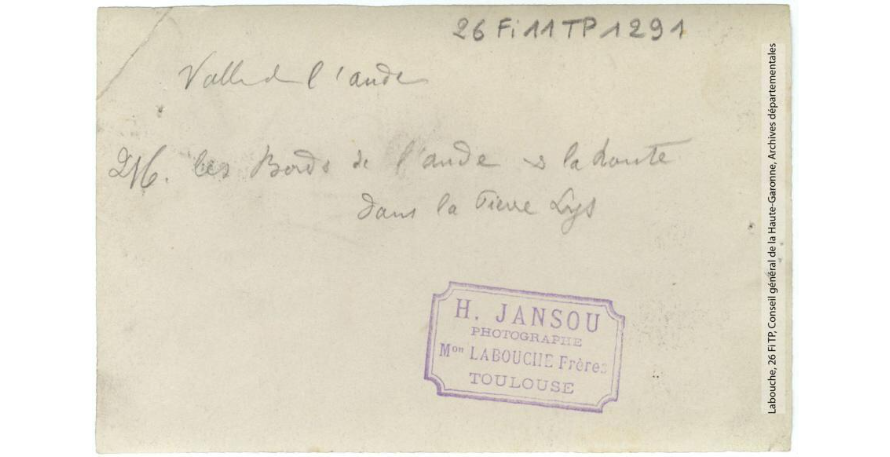 26 Fi 11 TP 1291
Vallée de l'aude
216. les Bords de l'aude & la Route
dans la Pierre Lys
H. JANSOU
PHOTOGRAPHE
Mon LABOUCHE Frères
TOULOUSE
Labouche, 26 FITP, Conseil général de la Haute-Garonne, Archives départementales